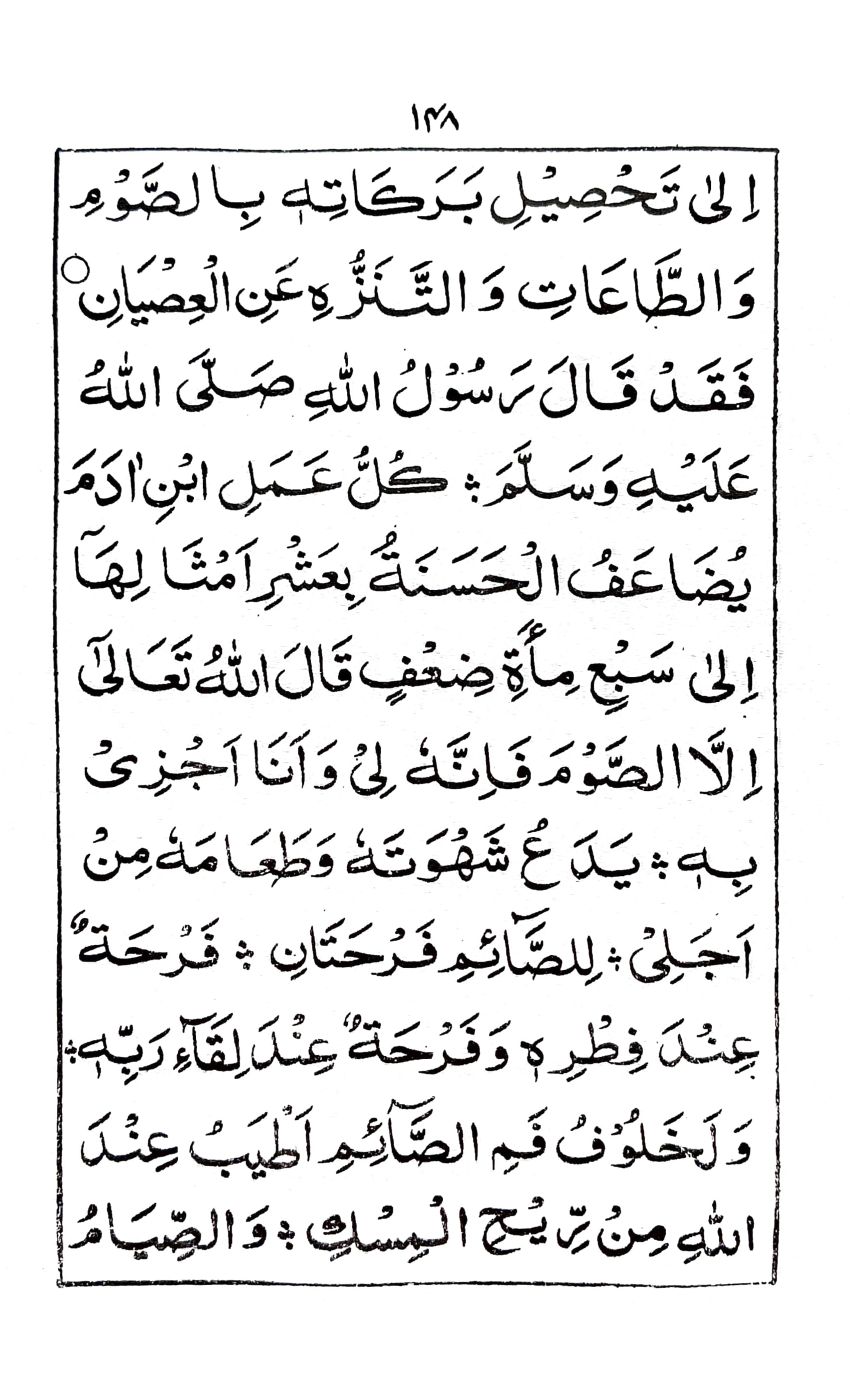 ۱۴۸
اِلٰى تَحْصِيْلِ بَرَكَاتِهٖ بِالصَّوْمِ
وَالطَّاعَاتِ وَالتَّنَزُّهِ عَنِ الْعِصْيَانِ ○
فَقَدْ قَالَ رَسُوْلُ اللهِ صَلَّى اللهُ
عَلَيْهِ وَسَلَّمَ ؞ كُلُّ عَمَلِ ابْنِ اٰدَمَ
يُضَاعَفُ الْحَسَنَةُ بِعَشْرِ اَمْثَالِهَآ
اِلٰى سَبْعِ مِأَةِ ضِعْفٍ قَالَ اللهُ تَعَالٰىٓ
اِلَّا الصَّوْمَ فَاِنَّهٗ لِىْ وَاَنَا اَجْزِىْ
بِهٖ ؞ يَدَعُ شَهْوَتَهٗ وَطَعَامَهٗ مِنْ
اَجَلِىْ ؞ لِلصَّآئِمِ فَرْحَتَانِ ؞ فَرْحَةٌ
عِنْدَ فِطْرِهٖ وَفَرْحَةٌ عِنْدَ لِقَآءِ رَبِّهٖ ؞
وَلَخَلُوْفُ فَمِ الصَّآئِمِ اَطْيَبُ عِنْدَ
اللهِ مِنْ رِّيْحِ الْمِسْكِ ؞ وَالصِّيَامُ